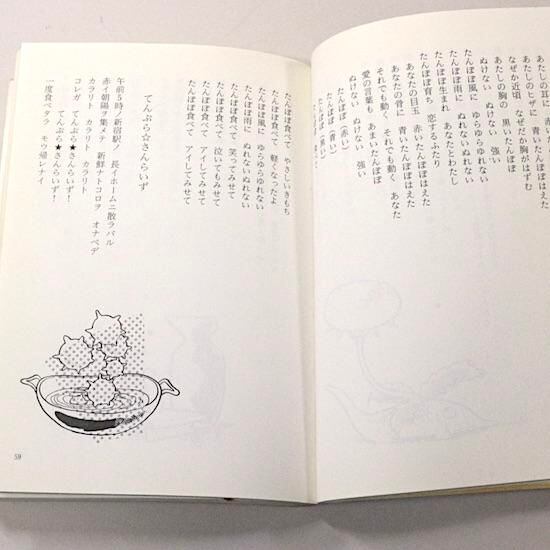 あたしの耳に 赤いたん
あたしのヒザに 青いたん
なぜか近頃 なぜだか胸がはずむ
あたしの胸の 黒いたんぽぽ
ぬけない ぬけない 強い
たんぽぽ風に ゆらゆらゆれない
たんぽぽ雨に ぬれないぬれない
たんぽぽ生まれ あなたとわたし
たんぽぽ育ち 恋するふたり
あなたの目玉 赤いたんぽぽはえた
あなたの骨に 青いたんぽぽはえた
それでも動く それでも動く あなた
愛の言葉も あまいたんぽぽ
ぬけない ぬけない 強い
たんぽぽ(赤い)
たんぽぽ(青い)
たんぽぽ(黒い)
たんぽぽ食べて やさしいきもち
たんぽぽ食べて 軽くなったよ
たんぽぽ風に ゆらゆらゆれない
たんぽぽ雨に ぬれないぬれない
たんぽぽ食べて 笑ってみせて
たんぽぽ食べて 泣いてもみせて
たんぽぽ食べて アイしてみせて
たんぽぽ食べて アイしてみせて
てんぷら☆さんらいず
午前5時ノ新宿駅ノ 長イホームニ散ラバル
赤イ朝陽ヲ集メテ 新鮮ナトコロヲ オナベデ
カラリト カラリト カラリト
コレガ てんぷら★さんらいず!
てんぷら★さんらいず!
一度食ベタラ モウ帰レナイ
59